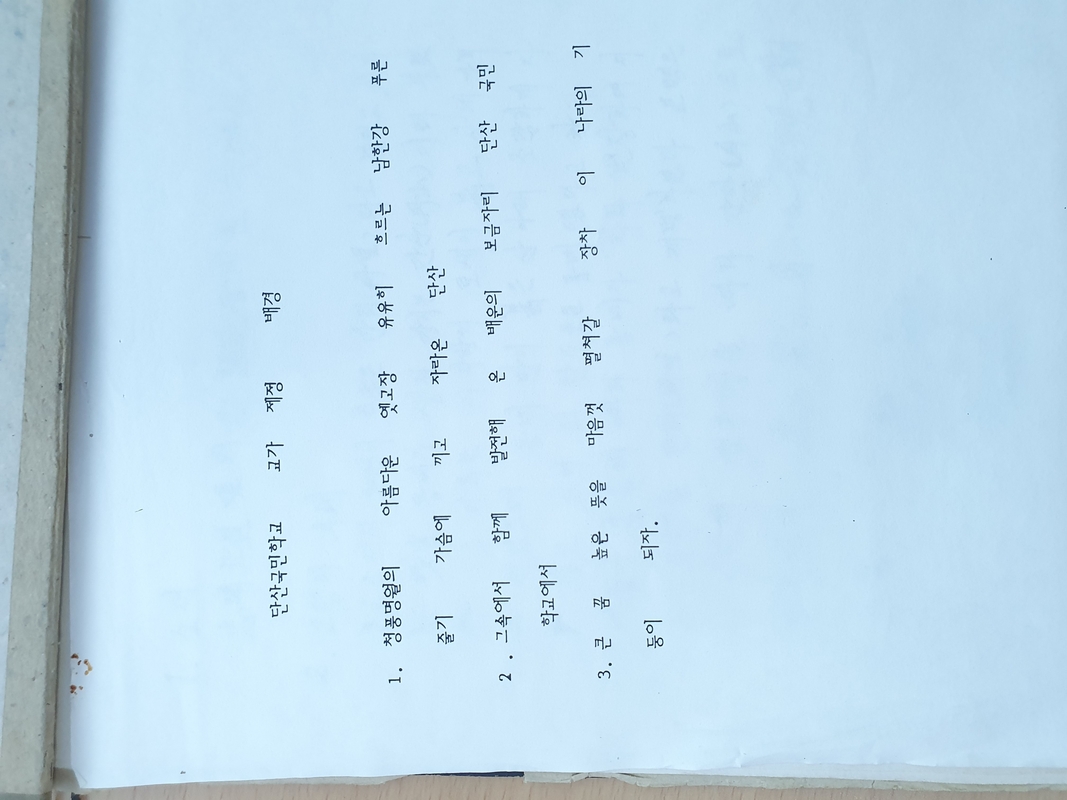 단산국민학교 교가 제정 배경
1. 청풍명월의 아름다운 옛고장 유유히 흐르는 남한강 푸른
줄기 가슴에 끼고 자라온 단산
2. 그속에서 함께 발전해 온 배운의 보금자리 단산 국민
학교에서
3. 큰 꿈 높은 뜻을 마음껏 펼쳐갈 장차 이 나라의 기
둥이 되자.